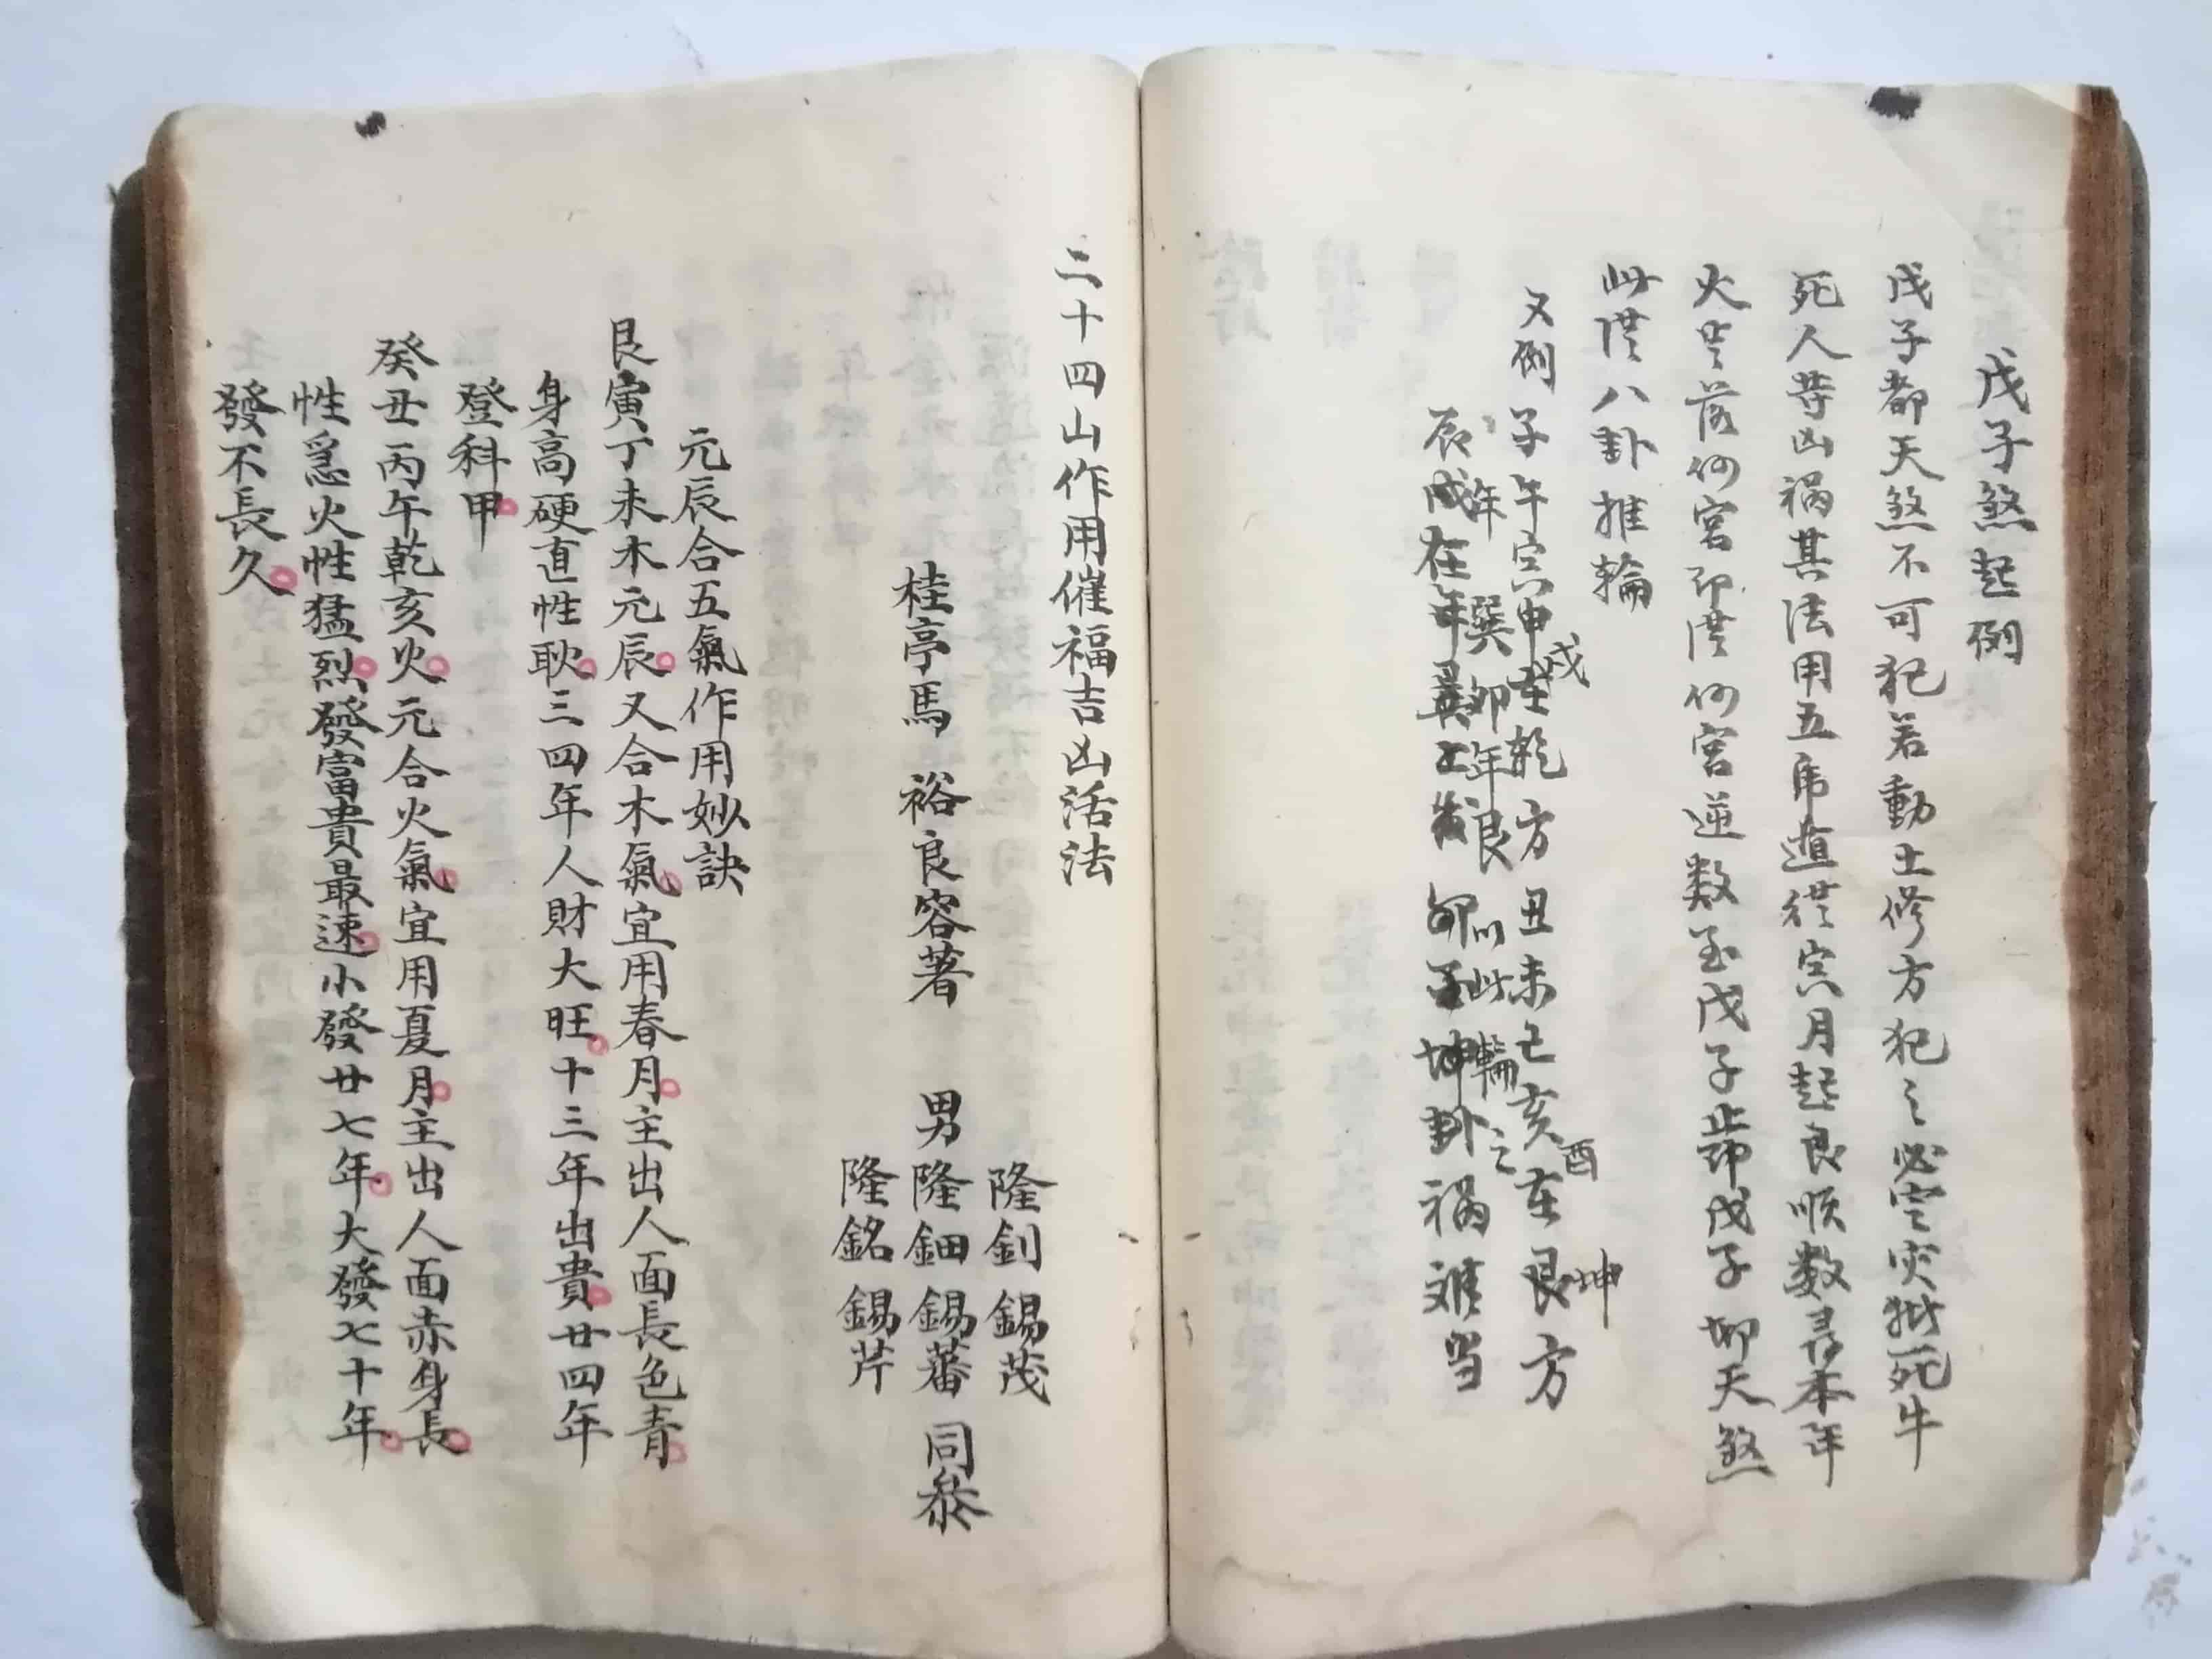 戊子煞起例
戊子都天煞不可犯若動土修方犯之必空灾拋死牛
死人等凶禍其法用五虎遁從寅月起良順数尋本年
火星落何宮即從何宮逆数至戊子歸即戊子都天煞
此從八卦推輪
又例子午寅申戌在乾方丑未巳亥酉在艮坤方
年巽卯年艮以此輪之
辰戌在年巽上裝卯子坤卦禍难当
二十四山作用催福吉凶活法
隆釗錫茂
桂亭馬裕良容著男隆鈿錫蕃同叅
隆銘錫芹
元辰合五氣作用妙訣
艮寅丁未木元辰又合木氣宜用春月主出人面長色青
身高硬直性耿三四年人財大旺十三年出貴廿四年
登科甲
癸丑丙午乾亥火元合火氣宜用夏月主出人面赤身長
性急火性猛烈發富貴最速小發廿七年大發七十年
發不長久